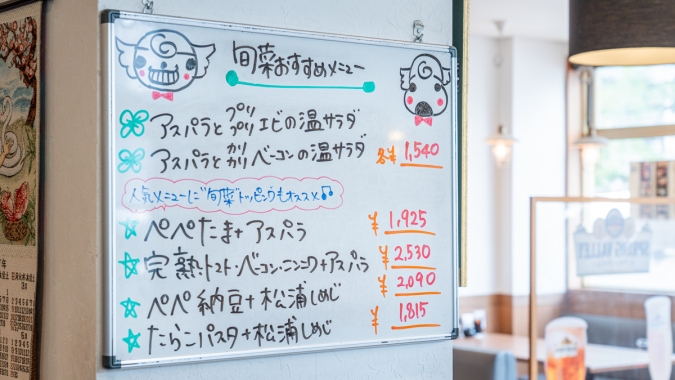 旬菜おすすめメニュー
アスパラとプリプリエビの温サラダ
アスパラとカリカリベーコンの温サラダ
各¥1,540
人気メニューに"旬菜"トッピングもオススメ♪
ペペたま+アスパラ ¥1,925
完熟トマト・ベーコン・ニンニク+アスパラ ¥2,530
ペペ納豆+松浦しめじ ¥2,090
たらこパスタ+松浦しめじ ¥1,815